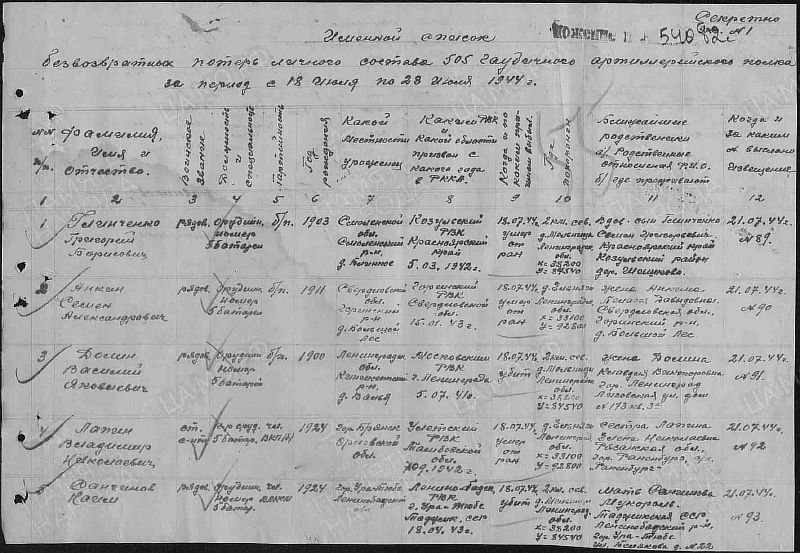 Секретно
Именной список
безвозвратных потерь личного состава 505 гаубичного артиллерийского полка
за период с 18 Июля по 23 Июля 1944 г.
№№ п/п.
Фамилия, Имя и Отчество.
Воинское звание
Должность и специальность
Партийность
Год рождения
Какой местности уроженец
Каким РВК и какой области призван с какого года в РККА.
Когда и по какой причине выбыл.
Где похоронен
Ближайшие родственники а) Родственные отношения Ф.И.О. б) где проживают
Когда и за каким № выслано извещение
1 2 3 4 5 6 7 8 9 10 11 12
1
Григорий
Борисович
рядов.
Орудийн. номер 5 батареи
б/п.
1903
Смоленской обл. Смоленский р-н.
Козульский РВК Красноярский край 5.03.1942 г.
18.07.44г. умер от ран
2 км. сев. д. Мельница Ленинград. обл. x=38200 y=84540
Семен Григорьевич Красноярский край Козульский район
21.07.44г. № 89.
2
Анкин
Семен
Александрович
рядов.
Орудийн. номер 5 батареи
б/п.
1911
Свердловской обл. Гаринский р-н д. Большой Лес
Гаринский РВК Свердловской обл. 15.01.43 г.
18.07.44г. умер от ран
Ленинград. обл. x=33100 y=92800
Жена Анкина Пелагея Давыдовна. Свердловская обл. Гаринский р-н д. Большой Лес
21.07.44г. № 90
3
Долин
Василий
Яковлевич
рядов.
Орудийн номер 5 батареи
б/п.
1900
Ленинградск. обл. р-н
Московским РВК г. Ленинграда 5.07.41г.
18.07.44г. убит
2 км. сев. д. Мельница Ленинград. обл. x=38200 y=84540
Жена Долина Клавдия Викторовна гор. Ленинград ул. дом № 173 кв. 3
21.07.44г. № 91.
4
Лапин
Владимир
Николаевич
ст. с-нт
5 батар.
ВКП(б)
1924
гор. Брянск Орловской обл.
РВК Тамбовской обл. 1942 г.
18.07.44г. умер от ран
Ленинград. обл. x=33100 y=92800
Сестра Лапина Елена Николаевна Рязанская обл. гор. Раненбург, ул. Раненбург
21.07.44г. № 92
5
Нагим
рядов.
Орудийн. номер 5 батар.
чл. ВЛКСМ
1924
гор. Ура-Тюбе Ленинабадской обл.
Ленинабадск. РВК г. Ура-Тюбе Таджик. сср 18.04.43г.
18.07.44г. убит
2 км. сев. д. Мельница Ленинград. обл. x=38200 y=84540
Мать Таджикская сср Ленинабадский р-н, гор. Ура-Тюбе д. №22
21.07.44г. № 93.